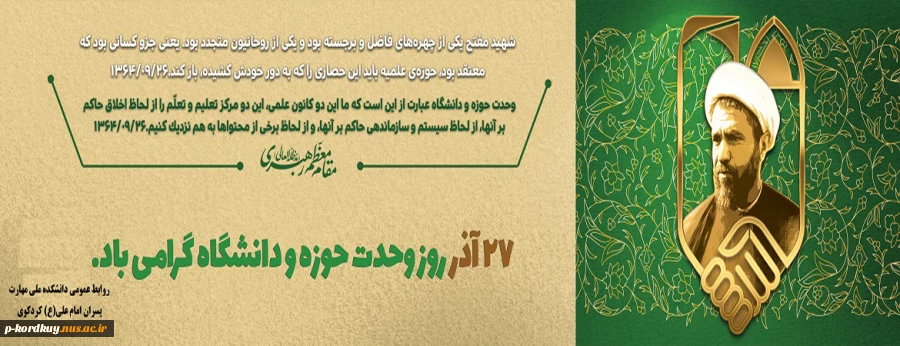 شهید مفتح یکی از چهره‌های فاضل و برجسته بود و یکی از روحانیون متجدد بود. یعنی جزو کسانی بود که
معتقد بود، حوزه‌ی علمیه باید این حصاری را که به دور خودش کشیده، باز کند.۱۳۶۴/۰۹/۲۶
وحدت حوزه و دانشگاه عبارت از این است که ما این دو کانون علمی، این دو مرکز تعلیم و تعلّم را از لحاظ اخلاق حاکم
بر آنها، از لحاظ سیستم و سازماندهی حاکم بر آنها، و از لحاظ برخی از محتواها به هم نزدیك کنیم.۱۳۶۴/۰۹/۲۶
مقام معظم رهبری مدظله‌العالی
۲۷ آذر روز وحدت حوزه و دانشگاه گرامی باد.
روابط عمومی دانشکده ملی مهارت
پسران امام علی(ع) کردکوی
p-kordkuy.nus.ac.ir